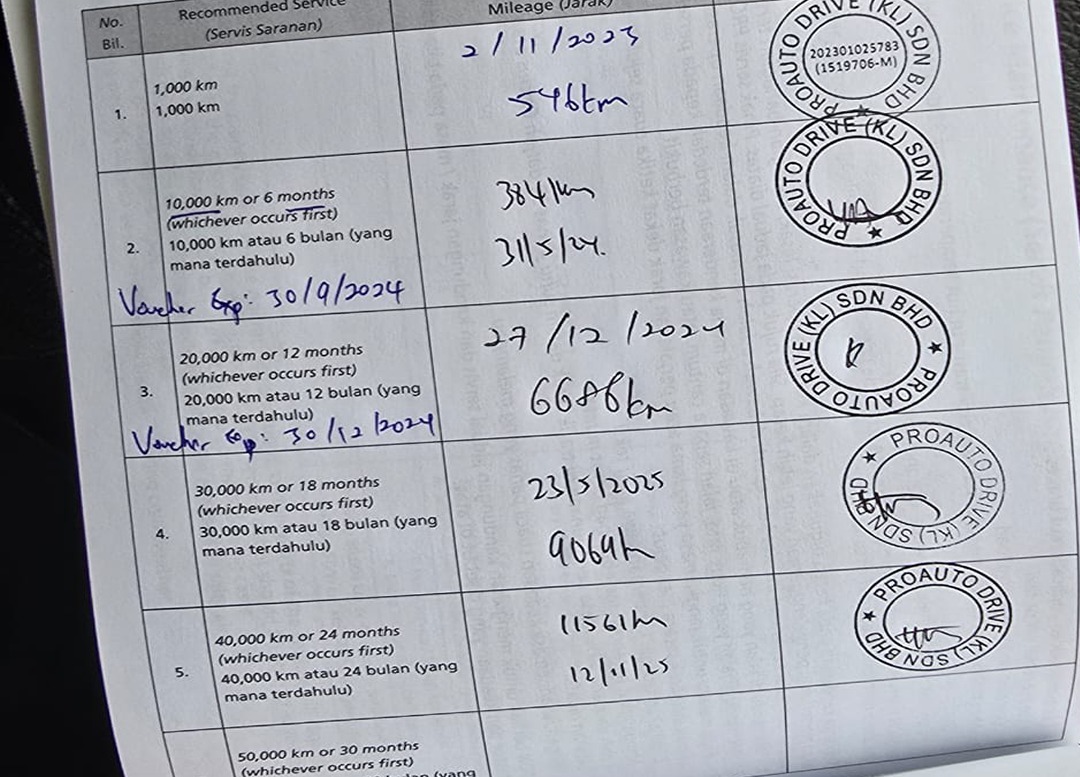 No.
Bil.
Recommended Service
(Servis Saranan)
Mileage (Jarak)
1.
1,000 km
1,000 km
2/11/2023
546km
PROAUTO DRIVE (KL) SDN BHD
202301025783
(1519706-M)
2.
10,000 km or 6 months
(whichever occurs first)
10,000 km atau 6 bulan (yang
mana terdahulu)
Voucher Exp: 30/9/2024
3841km
31/5/24.
PROAUTO DRIVE (KL) SDN BHD
3.
20,000 km or 12 months
(whichever occurs first)
20,000 km atau 12 bulan (yang
mana terdahulu)
Voucher Exp: 30/12/2024
27/12/2024
6686km
PROAUTO DRIVE (KL) SDN BHD
4.
30,000 km or 18 months
(whichever occurs first)
30,000 km atau 18 bulan (yang
mana terdahulu)
23/5/2025
9069k
PROAUTO DRIVE (KL) SDN BHD
5.
40,000 km or 24 months
(whichever occurs first)
40,000 km atau 24 bulan (yang
mana terdahulu)
11561k
12/11/25
PROAUTO DRIVE (KL) SDN BHD
50,000 km or 30 months
(whichever occurs first)
bulan (yang